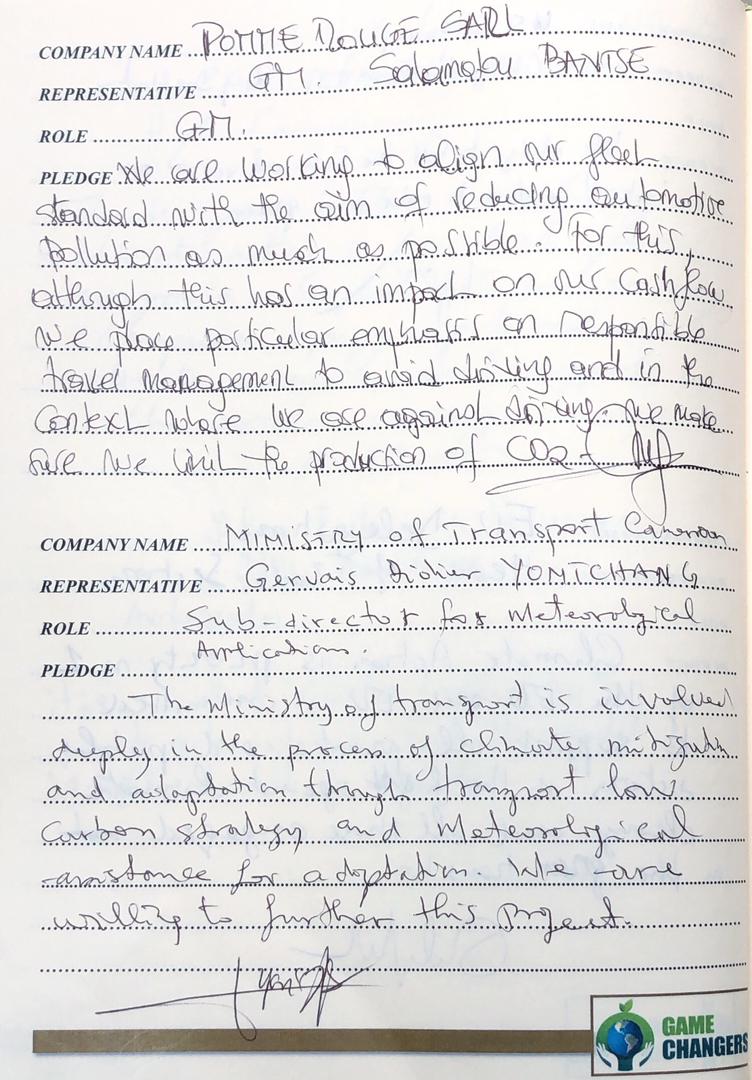 COMPANY NAME POMME ROUGE SARL
REPRESENTATIVE GM. Salamatou BANTSE
ROLE GM.
PLEDGE We are working to align our fleet
standard with the aim of reducing automotive
pollution as much as possible. For this,
although this has an impact on our cashflow
we place particular emphasis on responsible
travel management to avoid driving and in the
context where we are against driving. we make
sure we limit the production of CO2.
COMPANY NAME MIMISTRY of Transport Cameroon
REPRESENTATIVE Gervais Didier YONTCHANG
ROLE Sub-director for Meteorological
Applications.
PLEDGE
The Ministry of transport is involved
deeply in the process of climate mitigation
and adaptation through transport low
Carbon strategy and Meteorological
assistance for adaptation. We are
willing to further this Project.
GAME
CHANGERS